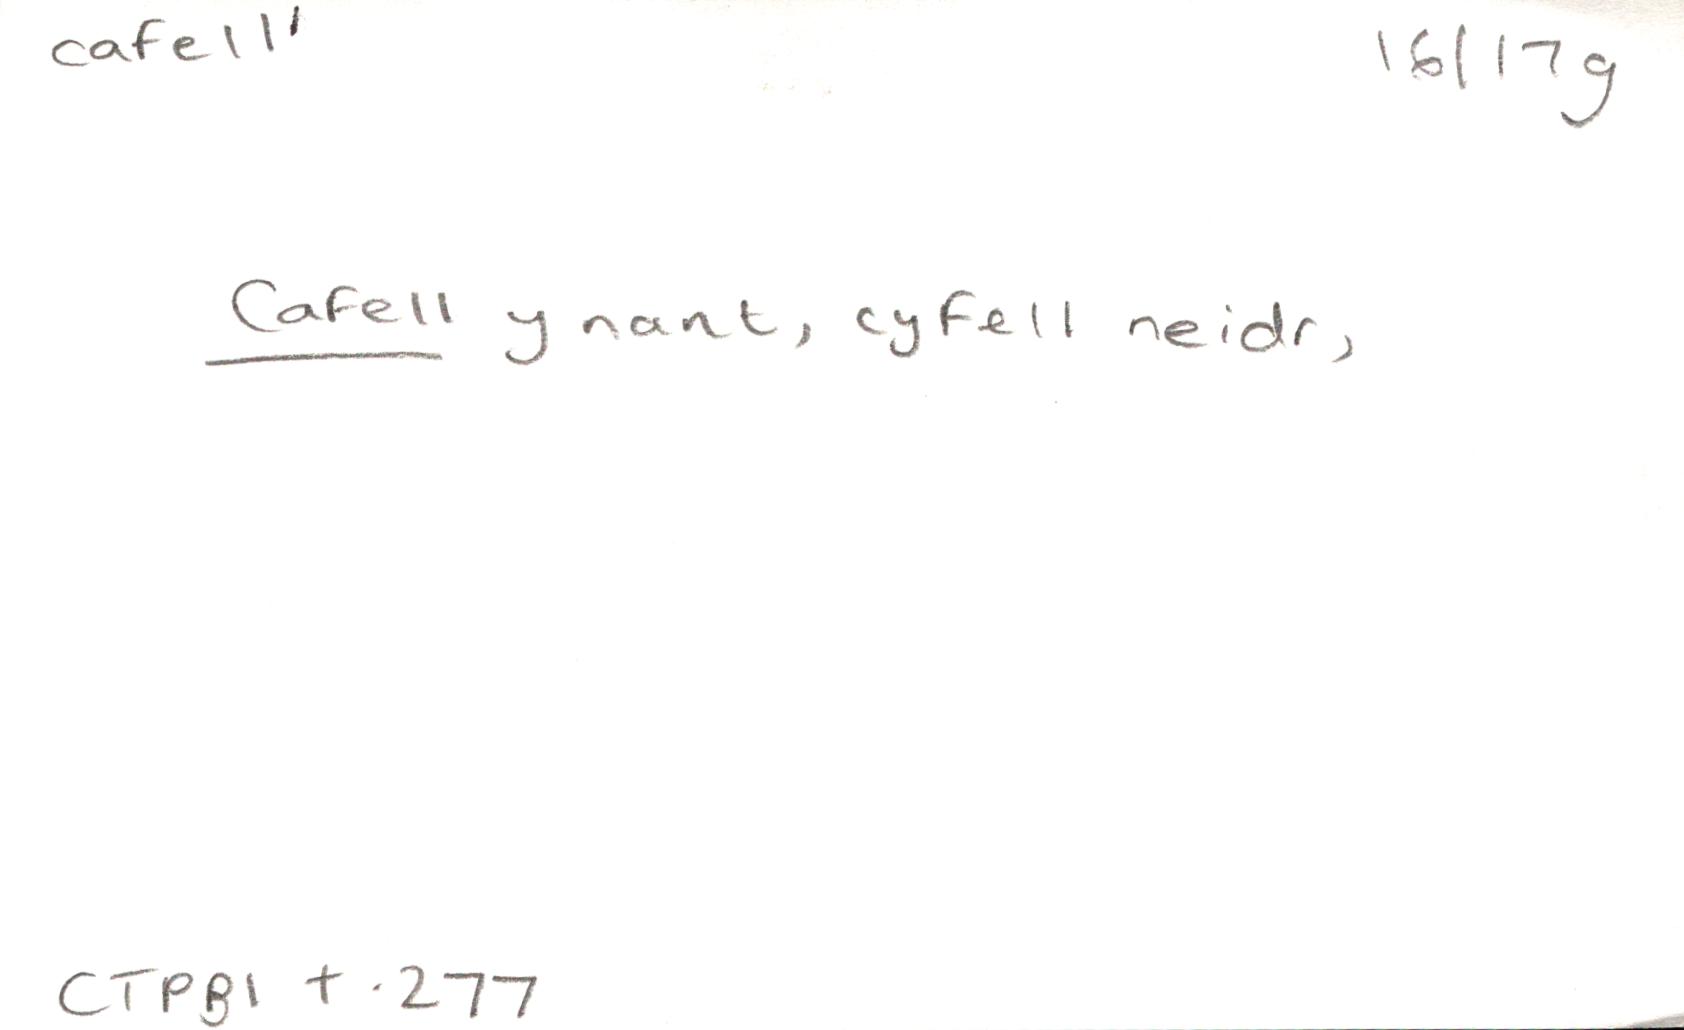 cafell¹
16/17g
Cafell y nant, cyfell neidr,
CTPB1 t.277